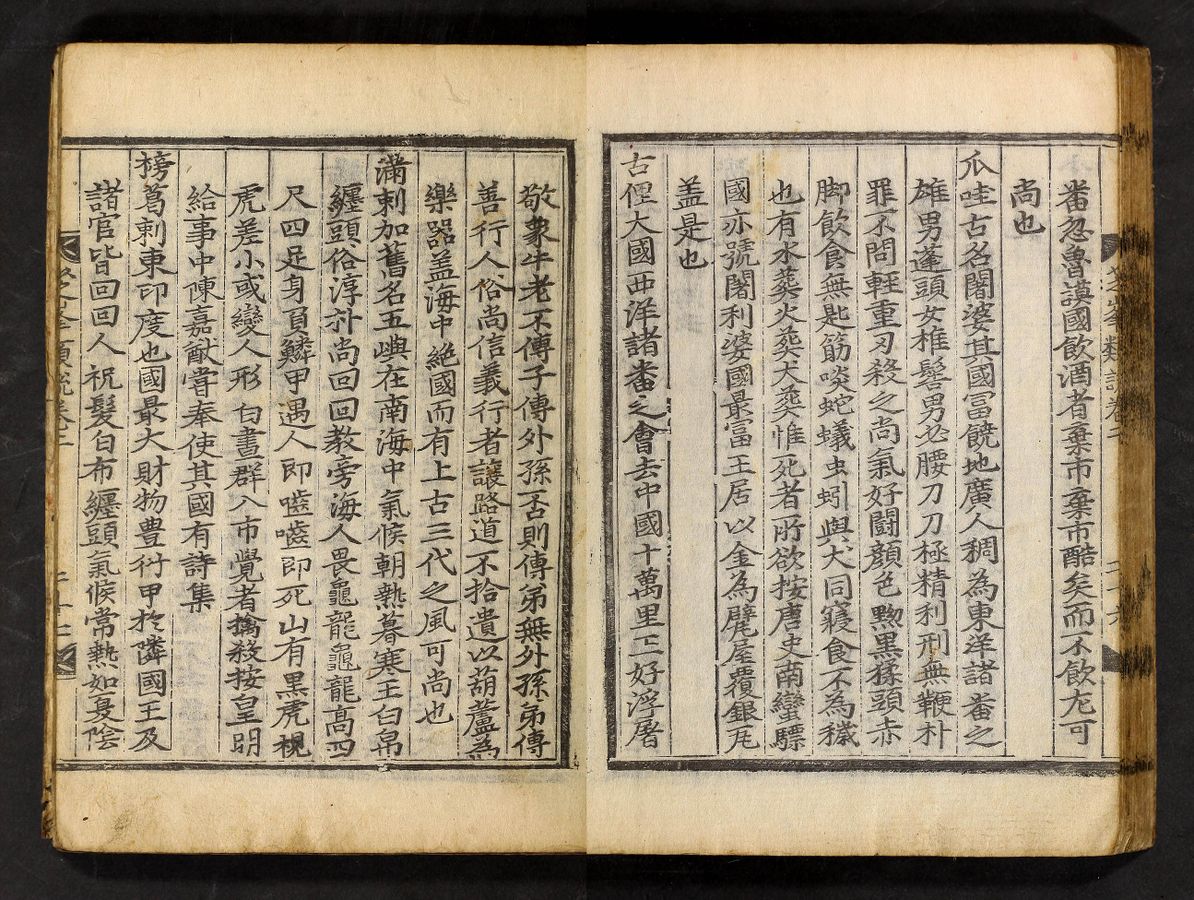 番忽魯謨國飲酒者棄市棄市酷矣而不飲尤可
尚也
爪哇古名闍婆其國冨饒地廣人稠為東洋諸番之
雄男蓬頭女椎髻男必腰刀刀極精利刑無鞭朴
罪不問輕重刃殺之尚氣好闘顔色黝黑猱頭赤
脚飲食無匙筯啖蛇蟻虫蚓與犬同寢食不為穢
也有水葬火葬犬葬惟死者所欲按唐史南蠻驃
國亦號闍利婆國最富王居以金為甓屋覆銀瓦
盖是也
古俚大國西洋諸番之會去中國十萬里王好浮屠
敬象牛老不傳子傳外孫否則傳弟無外孫弟傳
善行人俗尚信義行者讓路道不拾遺以葫蘆為
樂器盖海中絶國而有上古三代之風可尚也
滿剌加舊名五嶼在南海中氣候朝熱暮寒王白帛
纏頭俗淳朴尚回回教旁海人畏龜龍龜龍高四
尺四足身負鱗甲遇人即嚙嚙即死山有黒虎視
虎差小或變人形白晝群入市覺者擒殺按皇明
給事中陳嘉猷嘗奉使其國有詩集
榜葛剌東印度也國最大財物豊衍甲於隣國王及
諸官皆回回人祝髮白布纏頭氣候常熱如夏陰
芝峯類說卷二
二十七